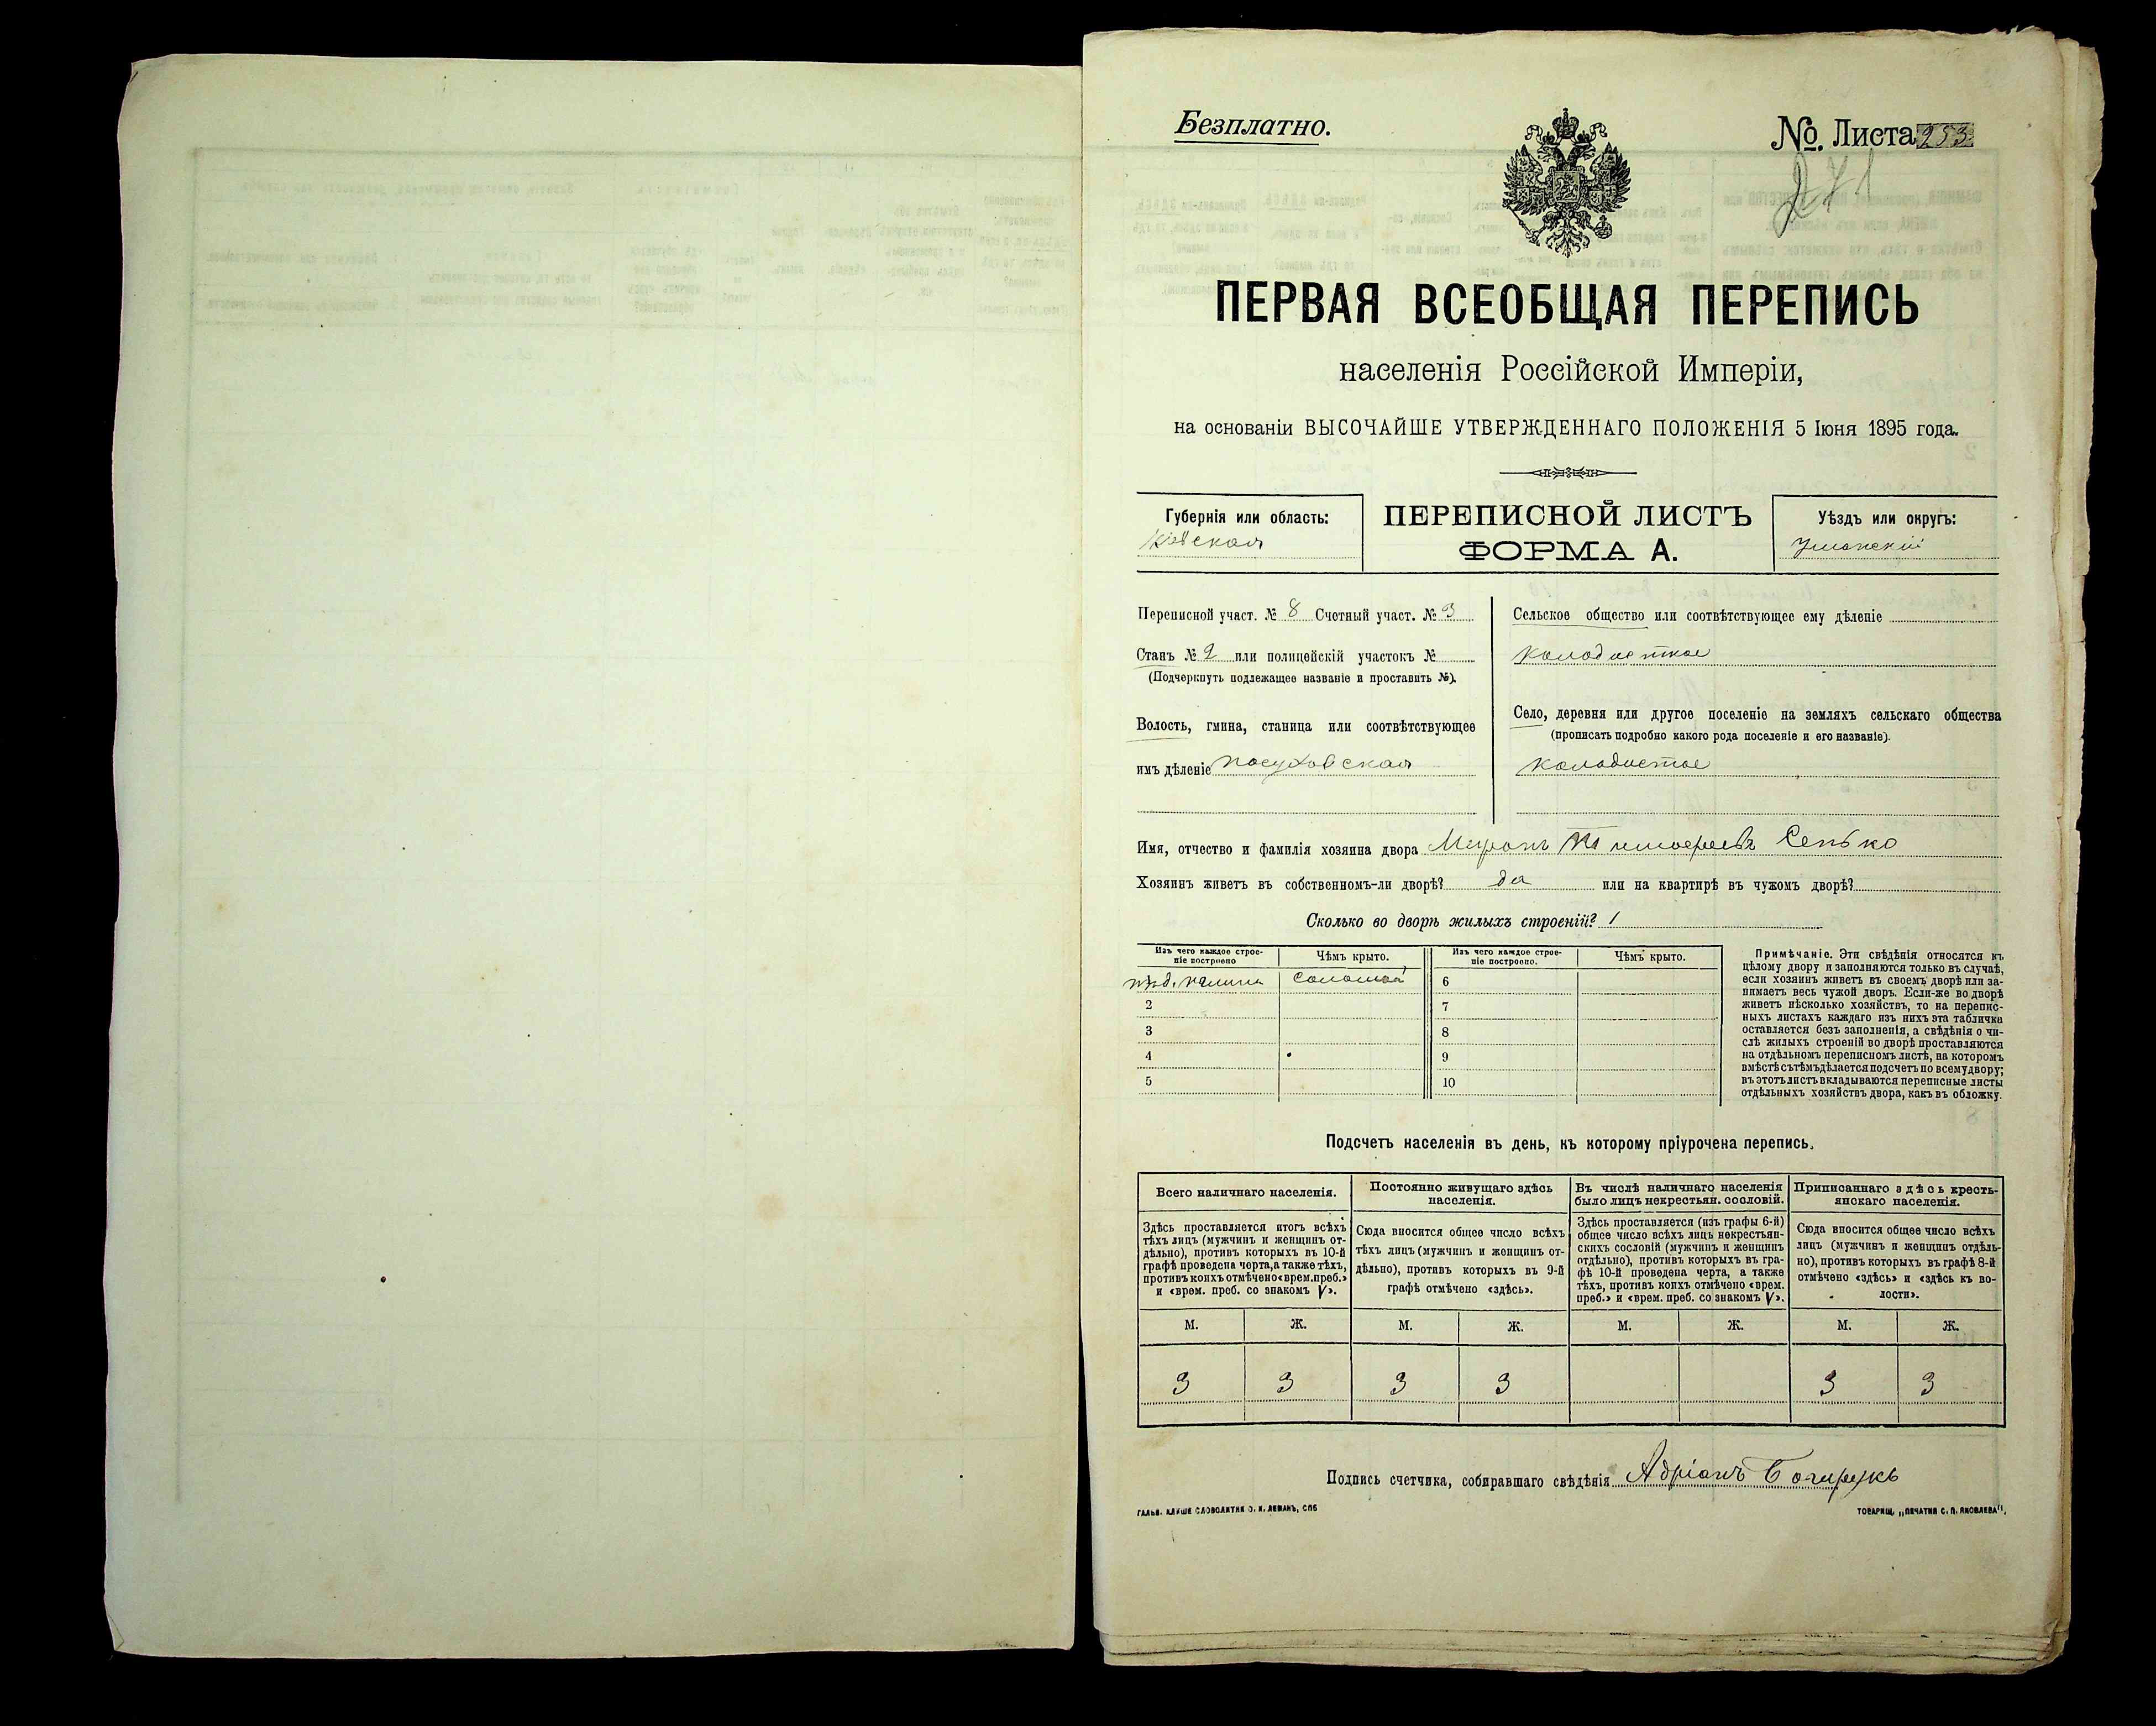 Безплатно.
№. Листа 253
271
ПЕРВАЯ ВСЕОБЩАЯ ПЕРЕПИСЬ
населенія Россійской Имперіи,
на основаніи ВЫСОЧАЙШЕ УТВЕРЖДЕННАГО ПОЛОЖЕНІЯ 5 Іюня 1895 года.
Губернія или область:
Кіевская
ПЕРЕПИСНОЙ ЛИСТЪ
ФОРМА А.
Уѣздъ или округъ:
Уманскій
Переписной участ. № 8 Счетный участ. № 3
Станъ № 2 или полицейскій участокъ №
(Подчеркнуть подлежащее названіе и проставить №).
Волость, гмина, станица или соотвѣтствующее
имъ дѣленіе посуховская
Сельское общество или соотвѣтствующее ему дѣленіе
колодистое
Село, деревня или другое поселеніе на земляхъ сельскаго общества
(прописать подробно какого рода поселеніе и его названіе).
колодистое
Имя, отчество и фамилія хозяина двора Миронъ Тимофеевъ Сенько
Хозяинъ живетъ въ собственномъ-ли дворѣ? да или на квартирѣ въ чужомъ дворѣ?
Сколько во дворѣ жилыхъ строеній? 1
Изъ чего каждое строе-
ніе построено
Чѣмъ крыто.
Изъ чего каждое строе-
ніе построено.
Чѣмъ крыто.
соломой 6
2 7
3 8
4 9
5 10
Примѣчаніе. Эти свѣдѣнія относятся къ
цѣлому двору и заполняются только въ случаѣ,
если хозяинъ живетъ въ своемъ дворѣ или за-
нимаетъ весь чужой дворъ. Если-же во дворѣ
живетъ нѣсколько хозяйствъ, то на перепис-
ныхъ листахъ каждаго изъ нихъ эта табличка
оставляется безъ заполненія, а свѣдѣнія о чи-
слѣ жилыхъ строеній во дворѣ проставляются
на отдѣльномъ переписномъ листѣ, на которомъ
вмѣстѣ съ тѣмъ дѣлается подсчетъ по всему двору;
въ этотъ листъ вкладываются переписные листы
отдѣльныхъ хозяйствъ двора, какъ въ обложку.
Подсчетъ населенія въ день, къ которому пріурочена перепись.
Всего наличнаго населенія.
Здѣсь проставляется итогъ всѣхъ
тѣхъ лицъ (мужчинъ и женщинъ от-
дѣльно), противъ которыхъ въ 10-й
графѣ проведена черта, а также тѣхъ,
противъ коихъ отмѣчено «врем. преб.»
и «врем. преб. со знакомъ V».
Постоянно живущаго здѣсь
населенія.
Сюда вносится общее число всѣхъ
тѣхъ лицъ (мужчинъ и женщинъ от-
дѣльно), противъ которыхъ въ 9-й
графѣ отмѣчено «здѣсь».
Въ числѣ наличнаго населенія
было лицъ некрестьян. сословій.
Здѣсь проставляется (изъ графы 6-й)
общее число всѣхъ лицъ некрестьян-
скихъ сословій (мужчинъ и женщинъ
отдѣльно), противъ которыхъ въ гра-
фѣ 10-й проведена черта, а также
тѣхъ, противъ коихъ отмѣчено «врем.
преб.» и «врем. преб. со знакомъ V».
Приписаннаго здѣсь кресть-
янскаго населенія.
Сюда вносится общее число всѣхъ
лицъ (мужчинъ и женщинъ отдѣль-
но), противъ которыхъ въ графѣ 8-й
отмѣчено «здѣсь» и «здѣсь къ во-
лости».
М. Ж. М. Ж. М. Ж. М. Ж.
3 3 3 3 3 3
Подпись счетчика, собиравшаго свѣдѣнія Адріанъ
ГАЛЬВ. КЛИШЕ СЛОВОЛИТНИ О. И. ЛЕМАНЪ, СПБ
ТОВАРИЩ. „ПЕЧАТНЯ С. П. ЯКОВЛЕВА".